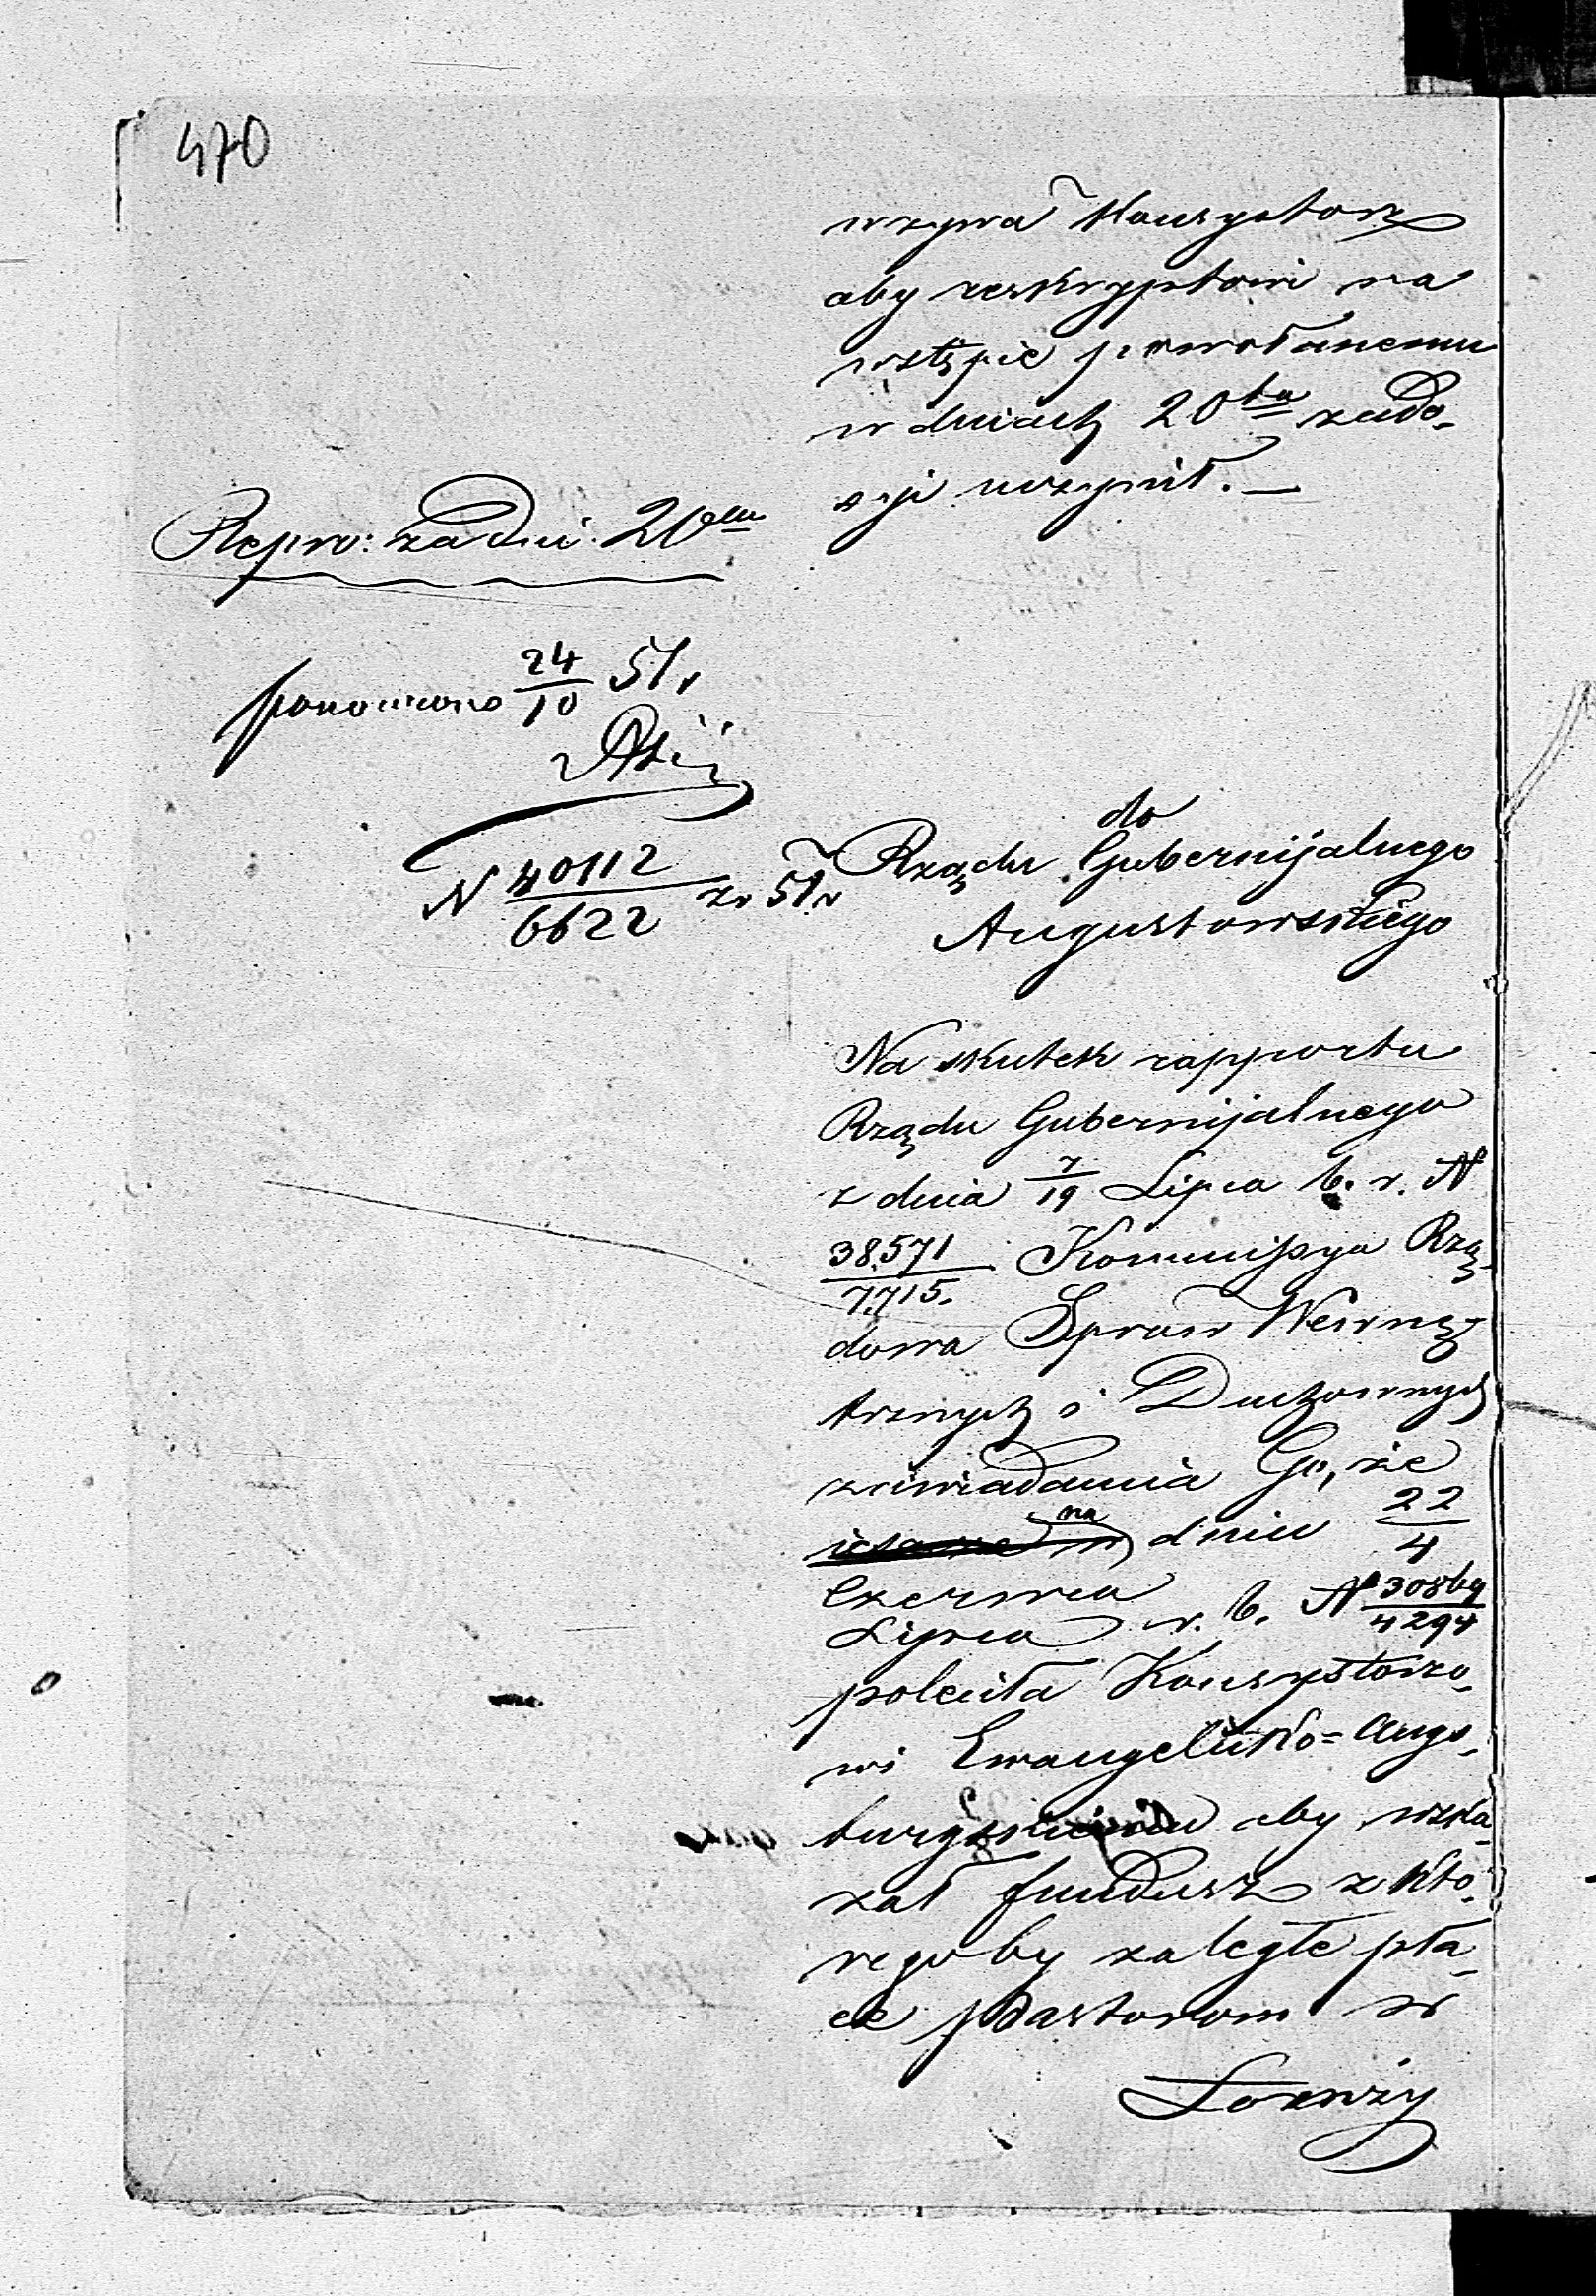 470
wzywa Konsystorz
aby reskryptowi na
wstępie powołanemu
w dniach 20tu zado„
syć uczynił. —
Repro: za dni 20cia
ponowiono 24/10 51 r
N 40112/6622 zr 51 r
do
Rządu Gubernijalnego
Augustowskiego
Na skutek rapportu
Rządu Gubernijalnego
z dnia 7/19 Lipca b. r. N
38.571/7.715. Kommissya Rzą„
dowa Spraw Wewnę„
trznych i Duchownych
zawiadamia Go, że
na dniu 22/4
Czerwca
Lipca r. b. N 30869/4294
poleciła Konsystorzo„
wi Ewangelicko=Augs„
burgskiemu aby wska„
zał fundusz z któ„
rego by zaległe pła„
ce pastorom w
Łomży